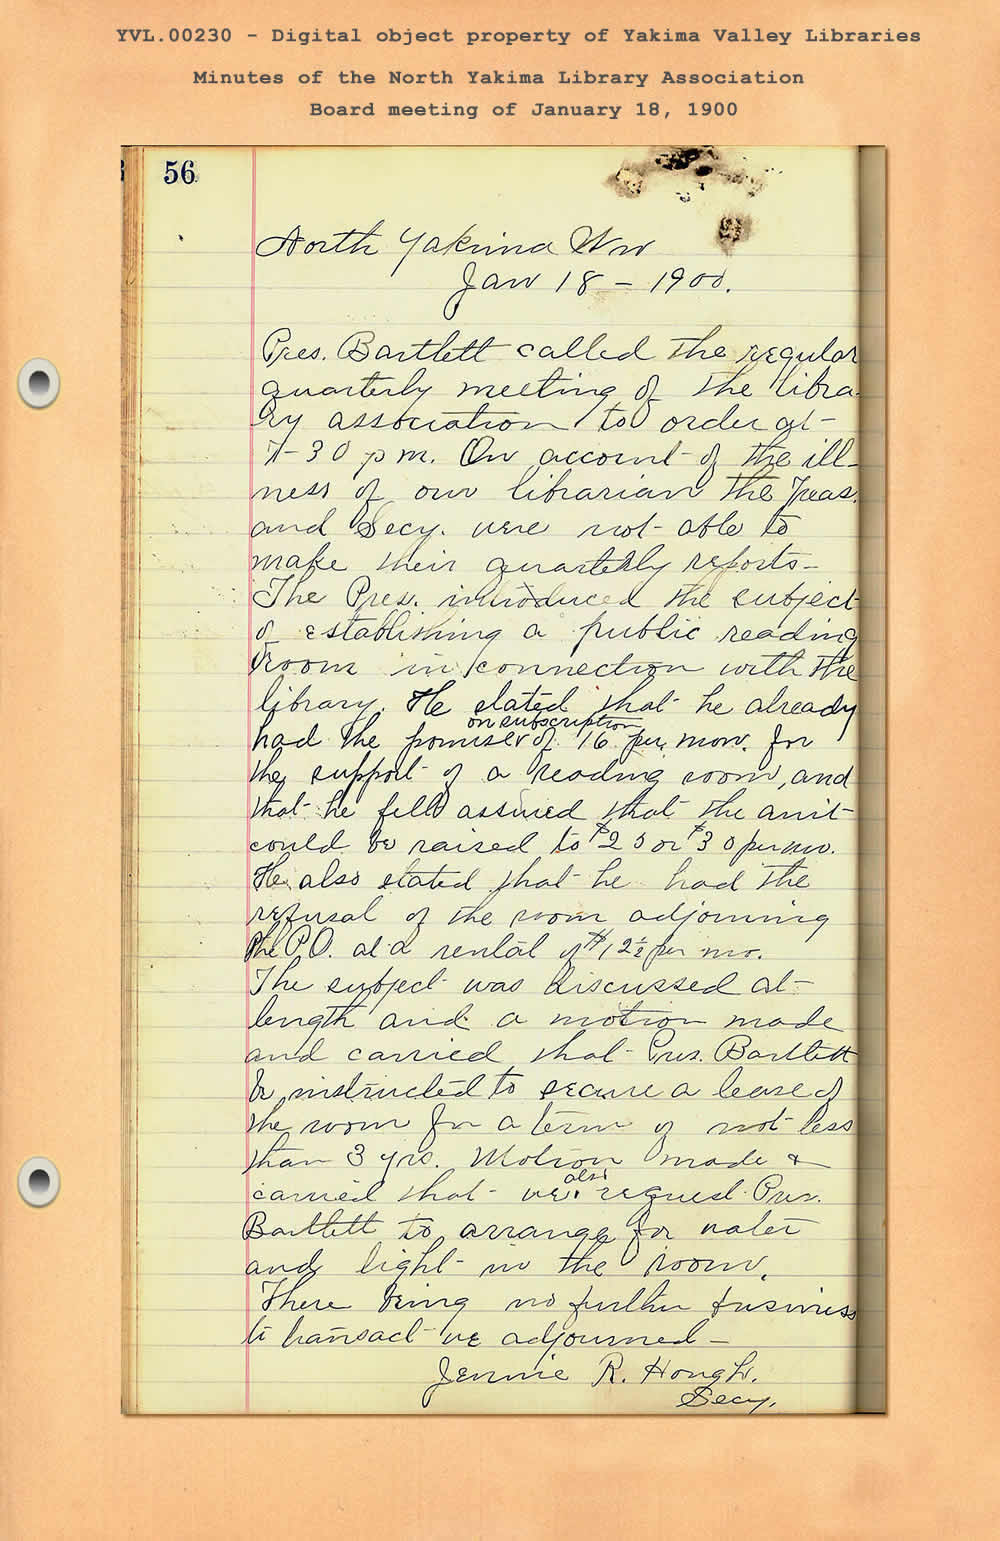 YVL.00230 - Digital object property of Yakima Valley Libraries
Minutes of the North Yakima Library Association
Board meeting of January 18, 1900
56
North Yakima Wn
Jan 18 - 1900.
Pres. Bartlett called the regular
quarterly meeting of the libra-
ry association to order at-
7-30 p m. On account of the ill-
ness of our librarian the Treas.
and Secy. were not able to
make their quarterly reports-
The Pres. introduced the subject
of establishing a public reading
room in connection with the
library. He stated that he already
on subscription
had the promise of 16 per mon. for
the support of a reading room, and
that he felt assured that the amt
could be raised to $25 or $30 per mo.
He also stated that he had the
refusal of the room adjoining
the P.O. at a rental of $12½ per mo.
The subject was discussed at-
length and a motion made
and carried that Pres. Bartlett
be instructed to secure a lease of
the room for a term of not less
than 3 yrs. Motion made &
also
carried that we request Pres.
Bartlett to arrange for water
and light in the room.
There being no further business
to transact we adjourned -
Jennie R. Hough.
Secy.